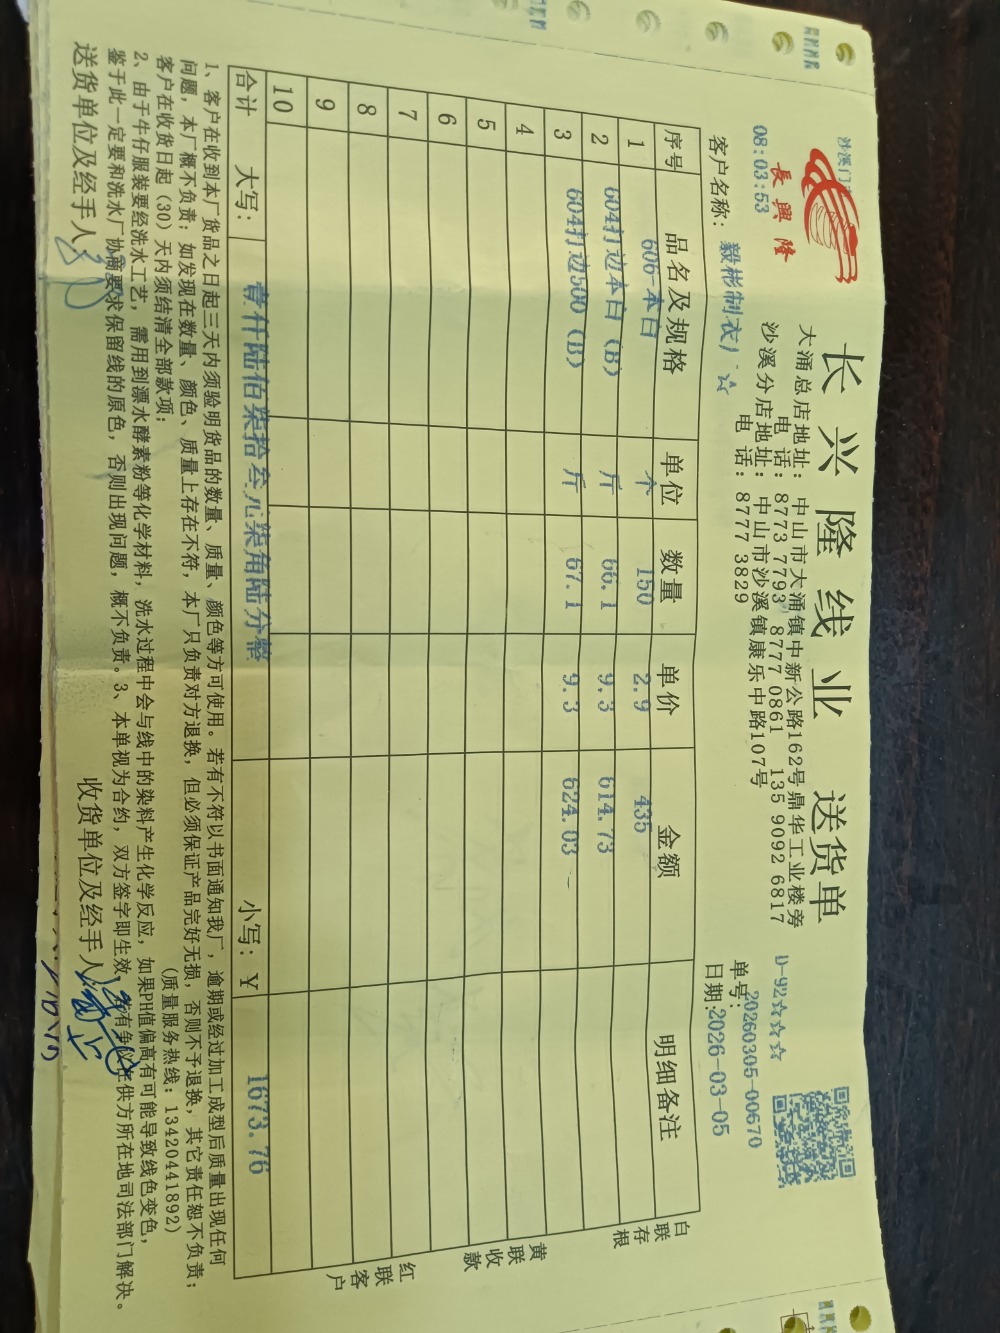 沙溪门市
長興隆
08:03:53
长兴隆线业 送货单
大涌总店地址: 中山市大涌镇中新公路162号鼎华工业楼旁
电 话: 8773 7793 8777 0861 135 9092 6817
沙溪分店地址: 中山市沙溪镇康乐中路107号
电 话: 8777 3829
D-92☆☆☆
单号: 20260305-00670
客户名称: 毅彬制衣厂☆ 日期: 2026-03-05
序号 品名及规格 单位 数量 单价 金额 明细备注
1 606-本白 个 150 2.9 435
2 604打边本白 (B) 斤 66.1 9.3 614.73
3 604打边500 (B) 斤 67.1 9.3 624.03
4
5
6
7
8
9
10
合计 大写: 壹仟陆佰柒拾叁元柒角陆分整 小写: ¥ 1673.76
白联存根
黄联收款
红联客户
1、客户在收到本厂货品之日起三天内须验明货品的数量、质量、颜色等方可使用。若有不符以书面通知我厂，逾期或经过加工成型后质量出现任何
问题，本厂概不负责；如发现在数量、颜色、质量上存在不符，本厂只负责对方退换，但必须保证产品完好无损，否则不予退换，其它责任恕不负责；
客户在收货日起（30）天内须结清全部款项；
(质量服务热线: 13420441892)
2、由于牛仔服装要经洗水工艺，需用到漂水酵素粉等化学材料，洗水过程中会与线中的染料产生化学反应，如果PH值偏高有可能导致线色变色，
鉴于此一定要和洗水厂协商要求保留线的原色，否则出现问题，概不负责。3、本单视为合约，双方签字即生效，若有争议在供方所在地司法部门解决。
送货单位及经手人: 收货单位及经手人: